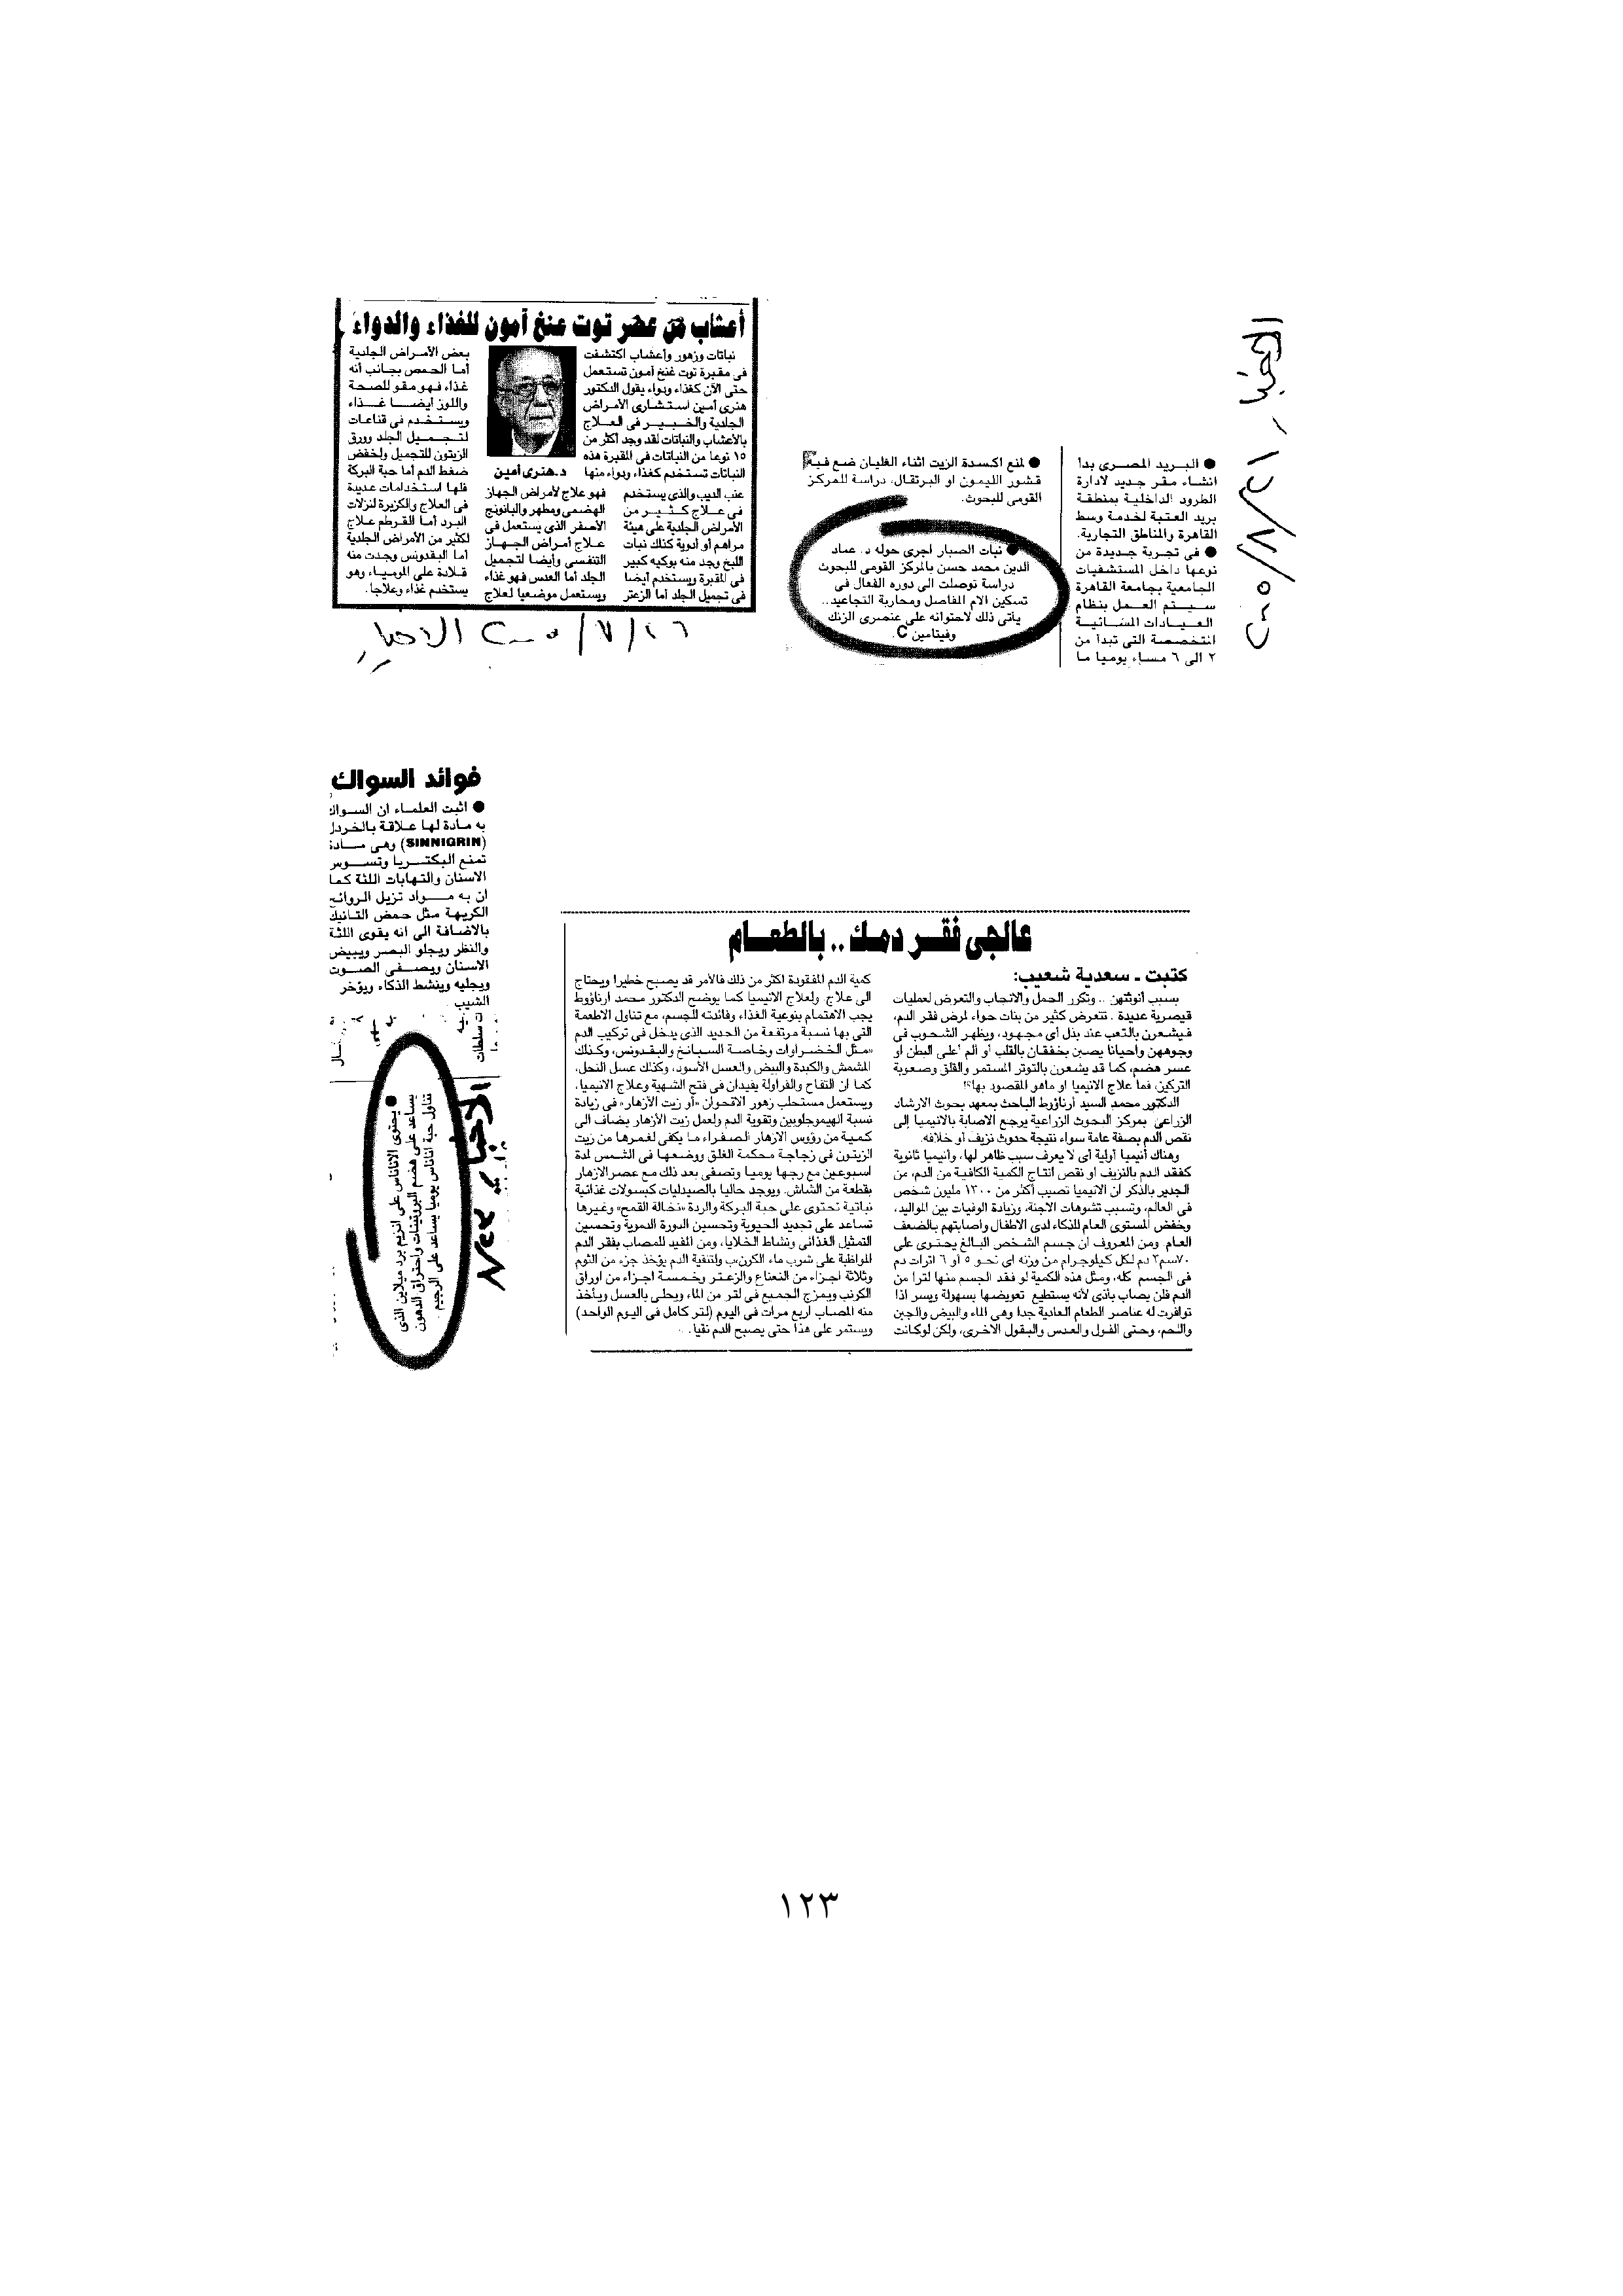 أعشاب من عصر توت عنخ آمون للغذاء والدواء
نباتات وزهور وأعشاب اكتشفت
فى مقبرة توت غنخ آمون تستعمل
حتى الآن كغذاء ودواء يقول الدكتور
هنرى أمين استشارى الأمراض
الجلدية والخبير فى العلاج
بالأعشاب والنباتات لقد وجد أكثر من
١٥ نوعا من النباتات فى المقبرة هذه
النباتات تستخدم كغذاء ودواء منها
عنب الديب والذى يستخدم
فى علاج كثير من
الأمراض الجلدية على هيئة
مراهم أو أدوية كذلك نبات
اللبخ وجد منه بوكيه كبير
فى المقبرة ويستخدم أيضا
فى تجميل الجلد أما الزعتر
د. هنرى أمين
فهو علاج لأمراض الجهاز
الهضمى ومطهر والبابونج
الأصفر الذى يستعمل فى
علاج أمراض الجهاز
التنفسى وأيضا لتجميل
الجلد أما العدس فهو غذاء
ويستعمل موضعيا لعلاج
بعض الأمراض الجلدية
أما الحمص بجانب أنه
غذاء فهو مقو للصحة
واللوز أيضا غذاء
ويستخدم فى قناعات
لتجميل الجلد وورق
الزيتون للتجميل ولخفض
ضغط الدم أما حبة البركة
فلها استخدامات عديدة
فى العلاج والكزبرة لنزلات
البرد أما القرطم علاج
لكثير من الأمراض الجلدية
أما البقدونس وجدت منه
قلادة على المومياء وهو
يستخدم غذاء وعلاجا.
الأخبار
● لمنع اكسدة الزيت اثناء الغليان ضع فيه
قشور الليمون او البرتقال، دراسة للمركز
القومى للبحوث.
● نبات الصبار اجرى حوله د. عماد
الدين محمد حسن بالمركز القومى للبحوث
دراسة توصلت الى دوره الفعال فى
تسكين الام المفاصل ومحاربة التجاعيد..
يأتى ذلك لاحتوائه على عنصرى الزنك
وفيتامين C.
● البريد المصرى بدأ
انشاء مقر جديد لادارة
الطرود الداخلية بمنطقة
بريد العتبة لخدمة وسط
القاهرة والمناطق التجارية.
● فى تجربة جديدة من
نوعها داخل المستشفيات
الجامعية بجامعة القاهرة
سيتم العمل بنظام
العيادات المسائية
المتخصصة التى تبدأ من
٢ الى ٦ مساء يوميا ما
فوائد السواك
● اثبت العلماء ان السواك
به مادة لها علاقة بالخردل
(SINNIGRIN) وهى مادة
تمنع البكتريا وتسوس
الاسنان والتهابات اللثة كما
ان به مواد تزيل الروائح
الكريهة مثل حمض التانيك
بالاضافة الى انه يقوى اللثة
والنظر ويجلو البصر ويبيض
الاسنان ويصفى الصوت
ويجليه وينشط الذكاء ويؤخر
الشيب.
● يحتوى الاناناس على انزيم برد ميلاين الذى
يساعد على هضم البروتينات واحتراق الدهون
تناول حبة اناناس يوميا يساعد على الرجيم.
الأخبار
عالجى فقر دمك .. بالطعام
كتبت ـ سعدية شعيب:
بسبب أنوثتهن .. وتكرر الحمل والانجاب والتعرض لعمليات
قيصرية عديدة . تتعرض كثير من بنات حواء لمرض فقر الدم،
فيشعرن بالتعب عند بذل أى مجهود، ويظهر الشحوب فى
وجوههن وأحيانا يصبن بخفقان بالقلب أو ألم أعلى البطن او
عسر هضم، كما قد يشعرن بالتوتر المستمر والقلق وصعوبة
التركيز، فما علاج الانيميا او ماهو المقصود بها؟!
الدكتور محمد السيد أرناؤوط الباحث بمعهد بحوث الارشاد
الزراعى بمركز البحوث الزراعية يرجع الاصابة بالانيميا إلى
نقص الدم بصفة عامة سواء نتيجة حدوث نزيف أو خلافه.
وهناك أنيميا أولية أى لا يعرف سبب ظاهر لها، وأنيميا ثانوية
كفقد الدم بالنزيف او نقص انتاج الكمية الكافية من الدم، من
الجدير بالذكر ان الانيميا تصيب أكثر من ١٣٠٠ مليون شخص
فى العالم، وتسبب تشوهات الاجنة، وزيادة الوفيات بين المواليد،
وخفض المستوى العام للذكاء لدى الاطفال واصابتهم بالضعف
العام ومن المعروف ان جسم الشخص البالغ يحتوى على
٧٠سم٣ دم لكل كيلوجرام من وزنه اى نحو ٥ أو ٦ لترات دم
فى الجسم كله، ومثل هذه الكمية لو فقد الجسم منها لترا من
الدم فلن يصاب بأذى لأنه يستطيع تعويضها بسهولة ويسر اذا
توافرت له عناصر الطعام العادية جدا وهى الماء والبيض والجبن
واللحم، وحتى الفول والعدس والبقول الاخرى، ولكن لوكانت
كمية الدم المفقودة اكثر من ذلك فالأمر قد يصبح خطيرا ويحتاج
الى علاج. ولعلاج الانيميا كما يوضح الدكتور محمد ارناؤوط
يجب الاهتمام بنوعية الغذاء وفائدته للجسم، مع تناول الاطعمة
التى بها نسبة مرتفعة من الحديد الذى يدخل فى تركيب الدم
«مثل الخضراوات وخاصة السبانخ والبقدونس، وكذلك
المشمش والكبدة والبيض والعسل الأسود، وكذلك عسل النحل،
كما ان التفاح والفراولة يفيدان فى فتح الشهية وعلاج الانيميا.
ويستعمل مستحلب زهور الاقحوان «أو زيت الأزهار» فى زيادة
نسبة الهيموجلوبين وتقوية الدم ولعمل زيت الأزهار يضاف الى
كمية من رؤوس الازهار الصفراء ما يكفى لغمرها من زيت
الزيتون فى زجاجة محكمة الغلق ووضعها فى الشمس لمدة
اسبوعين مع رجها يوميا وتصفى بعد ذلك مع عصر الازهار
بقطعة من الشاش. ويوجد حاليا بالصيدليات كبسولات غذائية
نباتية تحتوى على حبة البركة والردة «نخالة القمح» وغيرها
تساعد على تجديد الحيوية وتحسين الدورة الدموية وتحسين
التمثيل الغذائى ونشاط الخلايا، ومن المفيد للمصاب بفقر الدم
المواظبة على شرب ماء الكرنب ولتنقية الدم يؤخذ جزء من الثوم
وثلاثة اجزاء من النعناع والزعتر وخمسة اجزاء من اوراق
الكرنب ويمزج الجميع فى لتر من الماء ويحلى بالعسل ويأخذ
منه المصاب اربع مرات فى اليوم (لتر كامل فى اليوم الواحد)
ويستمر على هذا حتى يصبح الدم نقيا.
١٢٣